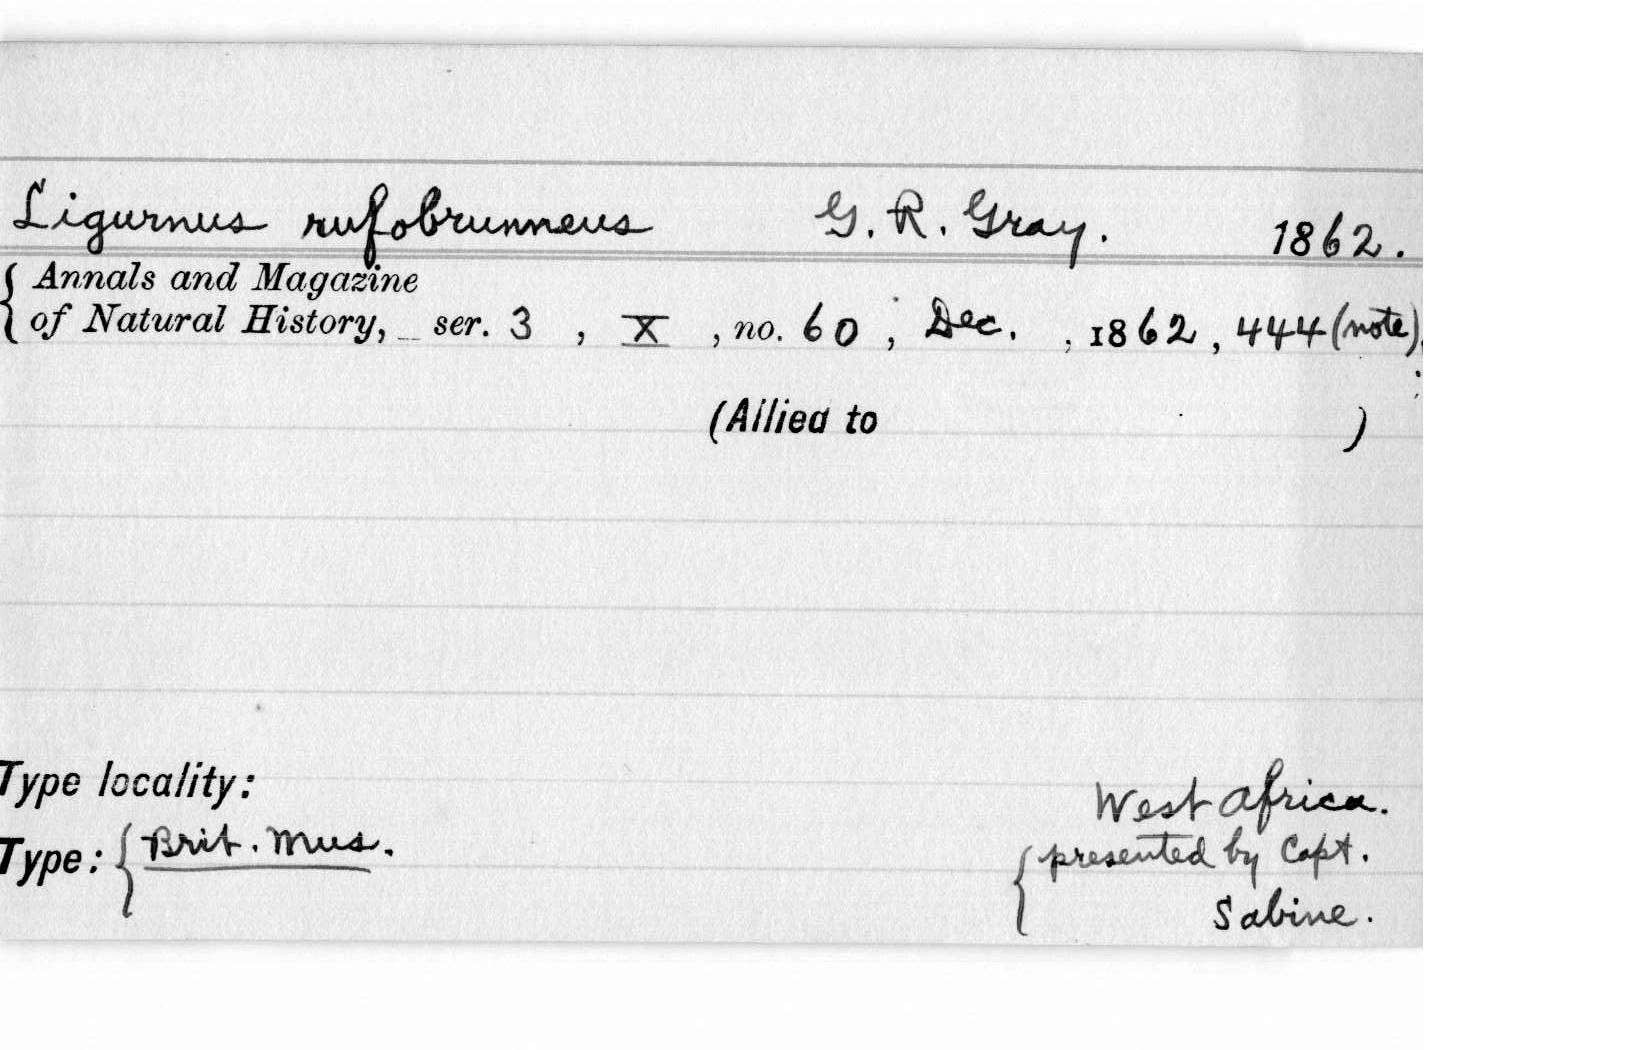 Ligurnus rufobrunneus G. R. Gray. 1862.
{ Annals and Magazine
of Natural History, ser. 3 , X , no. 60 , Dec. , 1862 , 444 (note).
(Allied to )
Type locality: West Africa.
Type: { Brit. Mus. { presented by Capt.
Sabine.